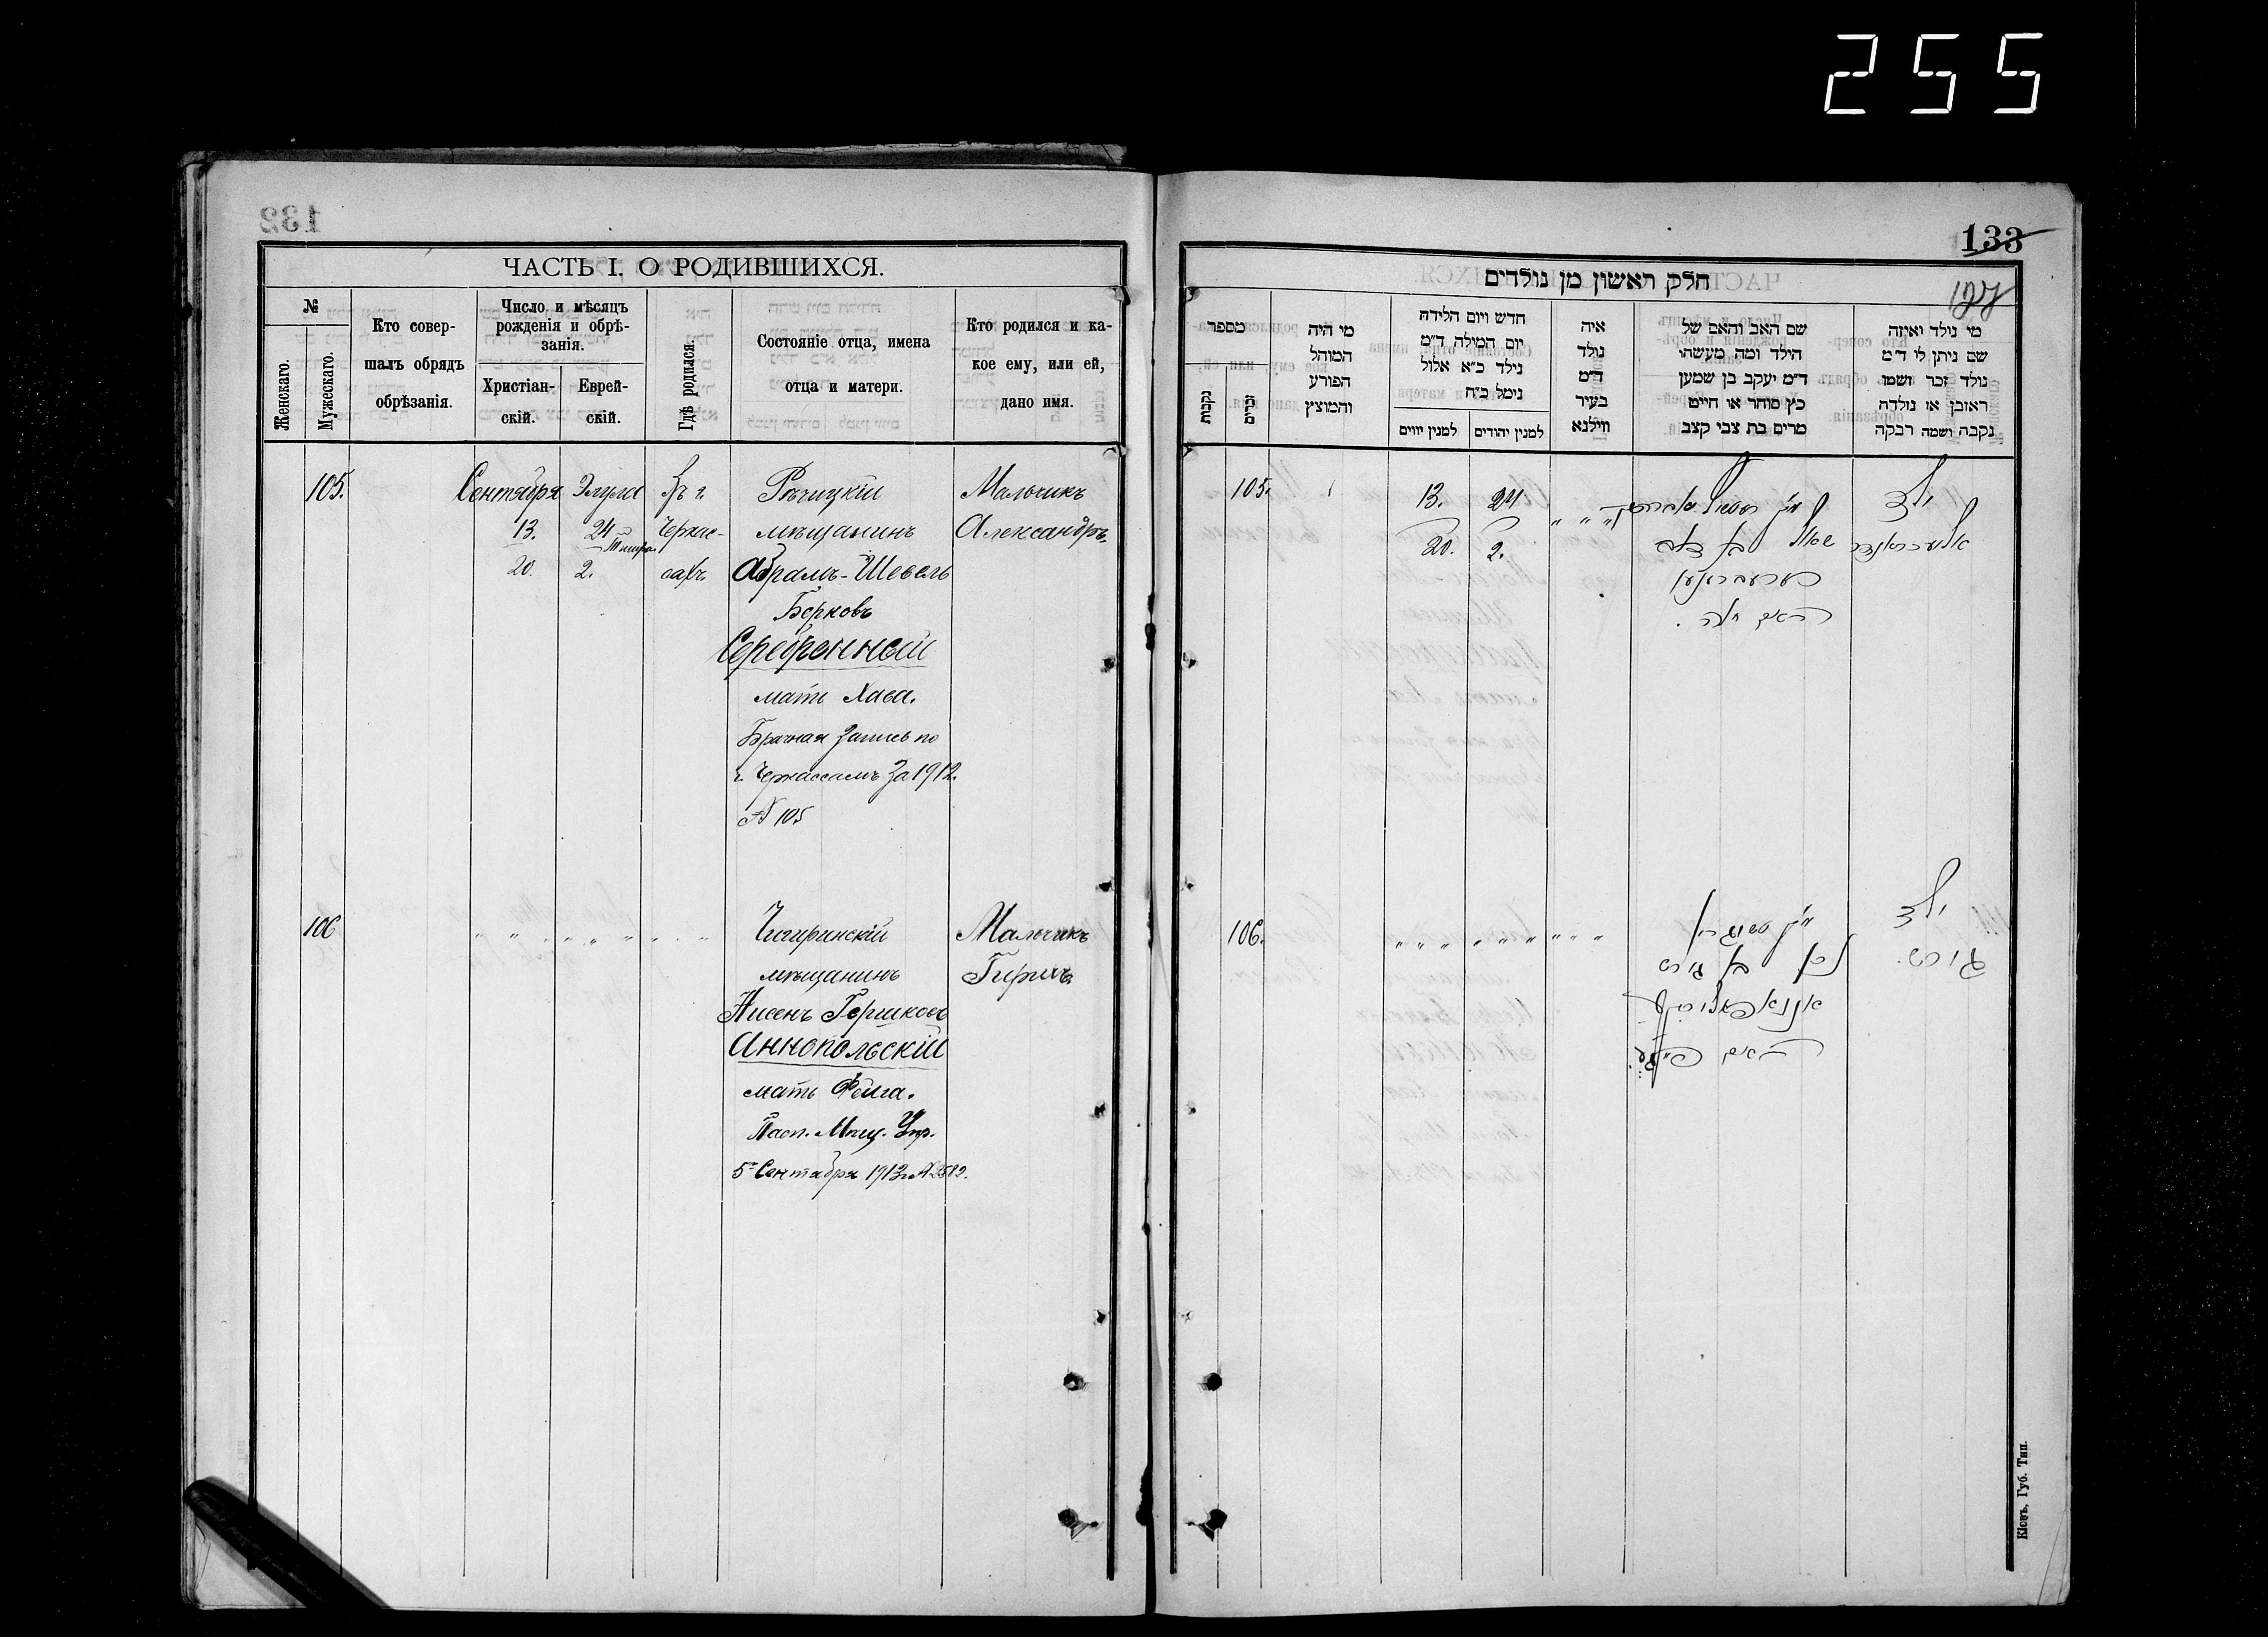 255
132
ЧАСТЬ I. О РОДИВШИХСЯ.
№
Женскаго.
Мужескаго.
Кто совер-
шалъ обрядъ
обрѣзанія.
Число и мѣсяцъ
рожденія и обрѣ-
занія.
Христіан-
скій.
Еврей-
скій.
Гдѣ родился.
Состояніе отца, имена
отца и матери.
Кто родился и ка-
кое ему, или ей,
дано имя.
105. Сентября Элула Въ г. Рѣчицкій Мальчикъ
13. 24 Черкас- мѣщанинъ Александръ.
Тишри.
20. 2. сахъ. Абрамъ-Шевель
Борковъ
Серебренный
мать Хава.
Брачная запись по
г. Черкассамъ за 1912.
№ 105
106 " " " " " " " " Чигиринскій Мальчикъ
мѣщанинъ Гиршъ.
Нисенъ Гершковъ
Аннопольскій
мать Фейга.
Пасп. Мѣщ. Упр.
5 Сентября 1913 г. №
133
127
חלק ראשון מן נולדים
מספר
נקבות
זכרים
מי היה
המוהל
הפורע
והמוצץ
חדש ויום הלידה
יום המילה ד״מ
נילד כ״א אלול
נימל כ״ח
למנין יווים
למנין יהודים
איה
נולד
ד״מ
בעיר
ווילנא
שם האב והאם של
הילד ומה מעשהו
ד״מ יעקב בן שמען
כץ סוחר או חייט
מרים בת צבי קצב
מי נולד ואיזה
שם ניתן לי ד״מ
נולד זכר ושמו
ראובן או נולדה
נקבה ושמה רבקה
105. 13. 24 " " " ילד
20. 2. שאול בן אלעכסאנדר
106. " " " " " " " " " ילד
ניסן בן הירש הירש.
אננאפאלסקי
האם פייגע.
Кіевъ, Губ. Тип.